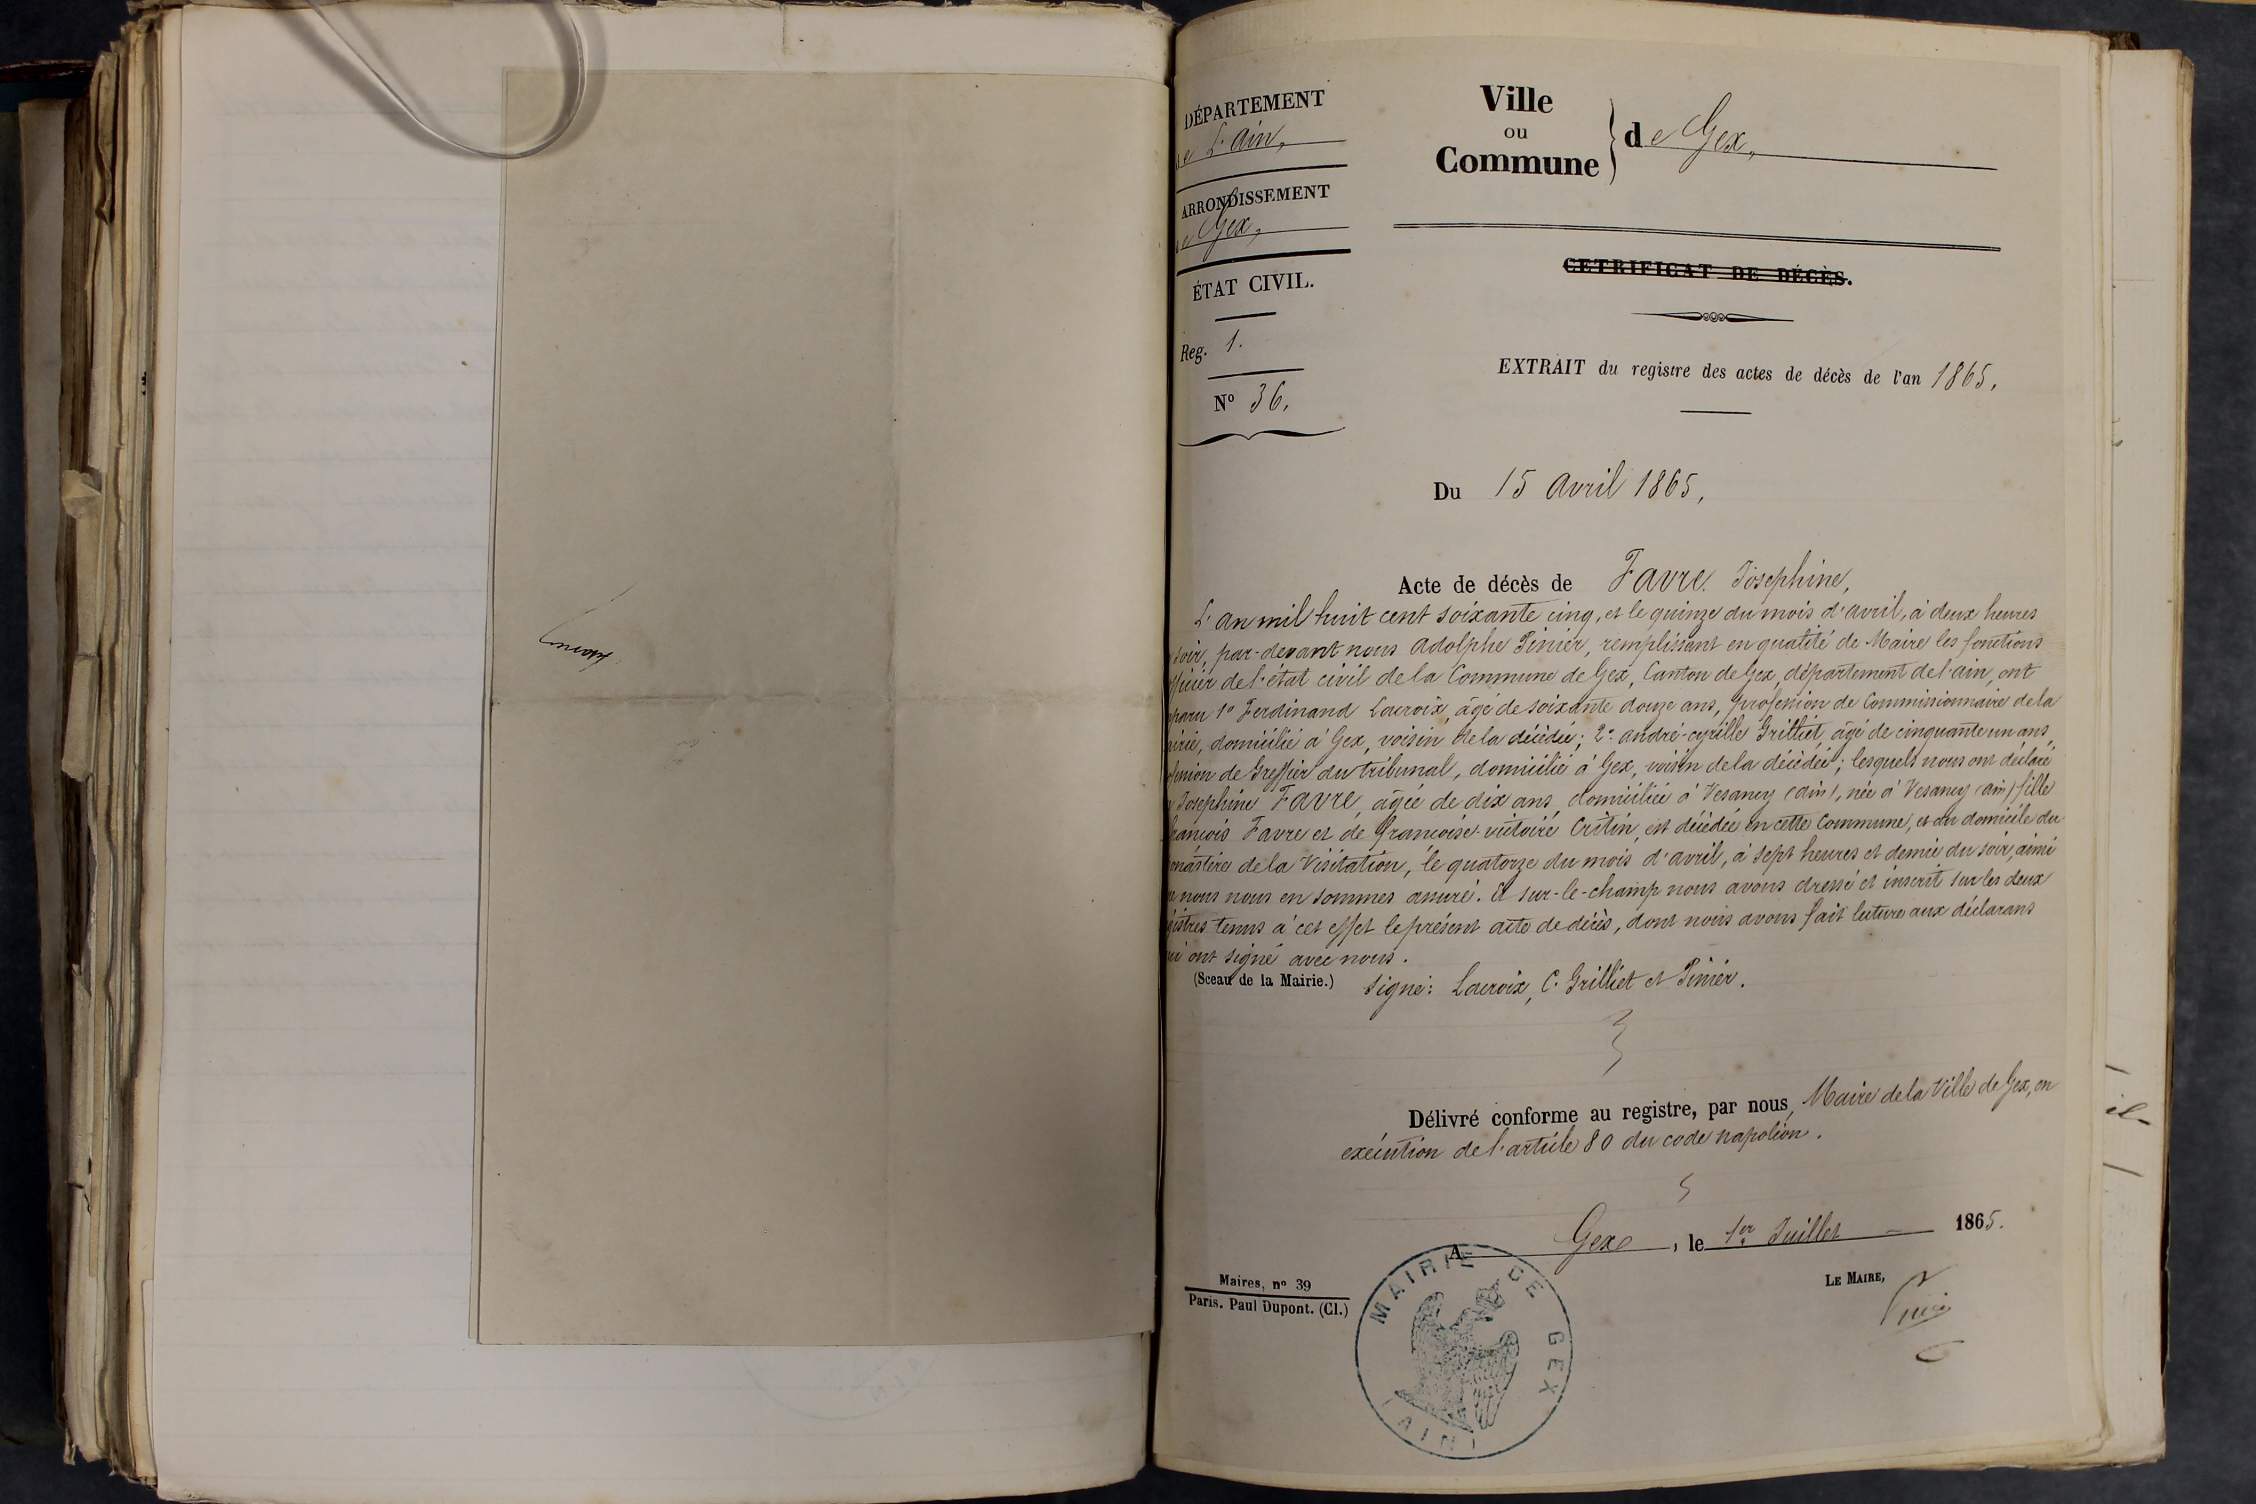 DÉPARTEMENT
de L'ain,
ARRONDISSEMENT
de Gex,
ÉTAT CIVIL.
Reg. 1.
Nº 36.
Ville
ou
Commune
de Gex,
CETRIFICAT DE DÉCÈS.
EXTRAIT du registre des actes de décès de l'an 1865.
Du 15 avril 1865,
Acte de décès de Favre Josephine,
L'an mil huit cent soixante cinq, et le quinze du mois d'avril, à deux heures
soir, par-devant nous Adolphe Pinier, remplissant en qualité de Maire les fonctions
fficier de l'état civil de la Commune de Gex, Canton de Gex, département de l'ain, ont
paru 1º Ferdinand Lacroix, âgé de soixante douze ans, profession de Commissionnaire de la
irie, domicilié à Gex, voisin de la décédée; 2º andré-cyrille Grilliet, âgé de cinquante un ans,
fession de Greffier du tribunal, domicilié à Gex, voisin de la décédée; lesquels nous ont déclaré
Josephine Favre, âgée de dix ans, domiciliée à Vesancy (ain), née à Vesancy (ain) fille
rancois Favre et de francoise-victoire Critin, est décédée en cette Commune, et au domicile du
onastère de la Visitation, le quatorze du mois d'avril, à sept heures et demie du soir, ainsi
nous nous en sommes assuré. Et sur-le-champ nous avons dressé et inscrit sur les deux
gistres tenus à cet effet le présent acte de décès, dont nous avons fait lecture aux déclarans
ui ont signé avec nous.
(Sceau de la Mairie.) Signé: Lacroix, C. Grilliet et Pinier.
Délivré conforme au registre, par nous, Maire de la Ville de Gex, en
exécution de l'article 80 du code napoléon.
A Gex, le 1er Juillet 1865.
Maires, nº 39
Paris. Paul Dupont. (Cl.)
LE MAIRE,
MAIRIE DE GEX
(AIN)